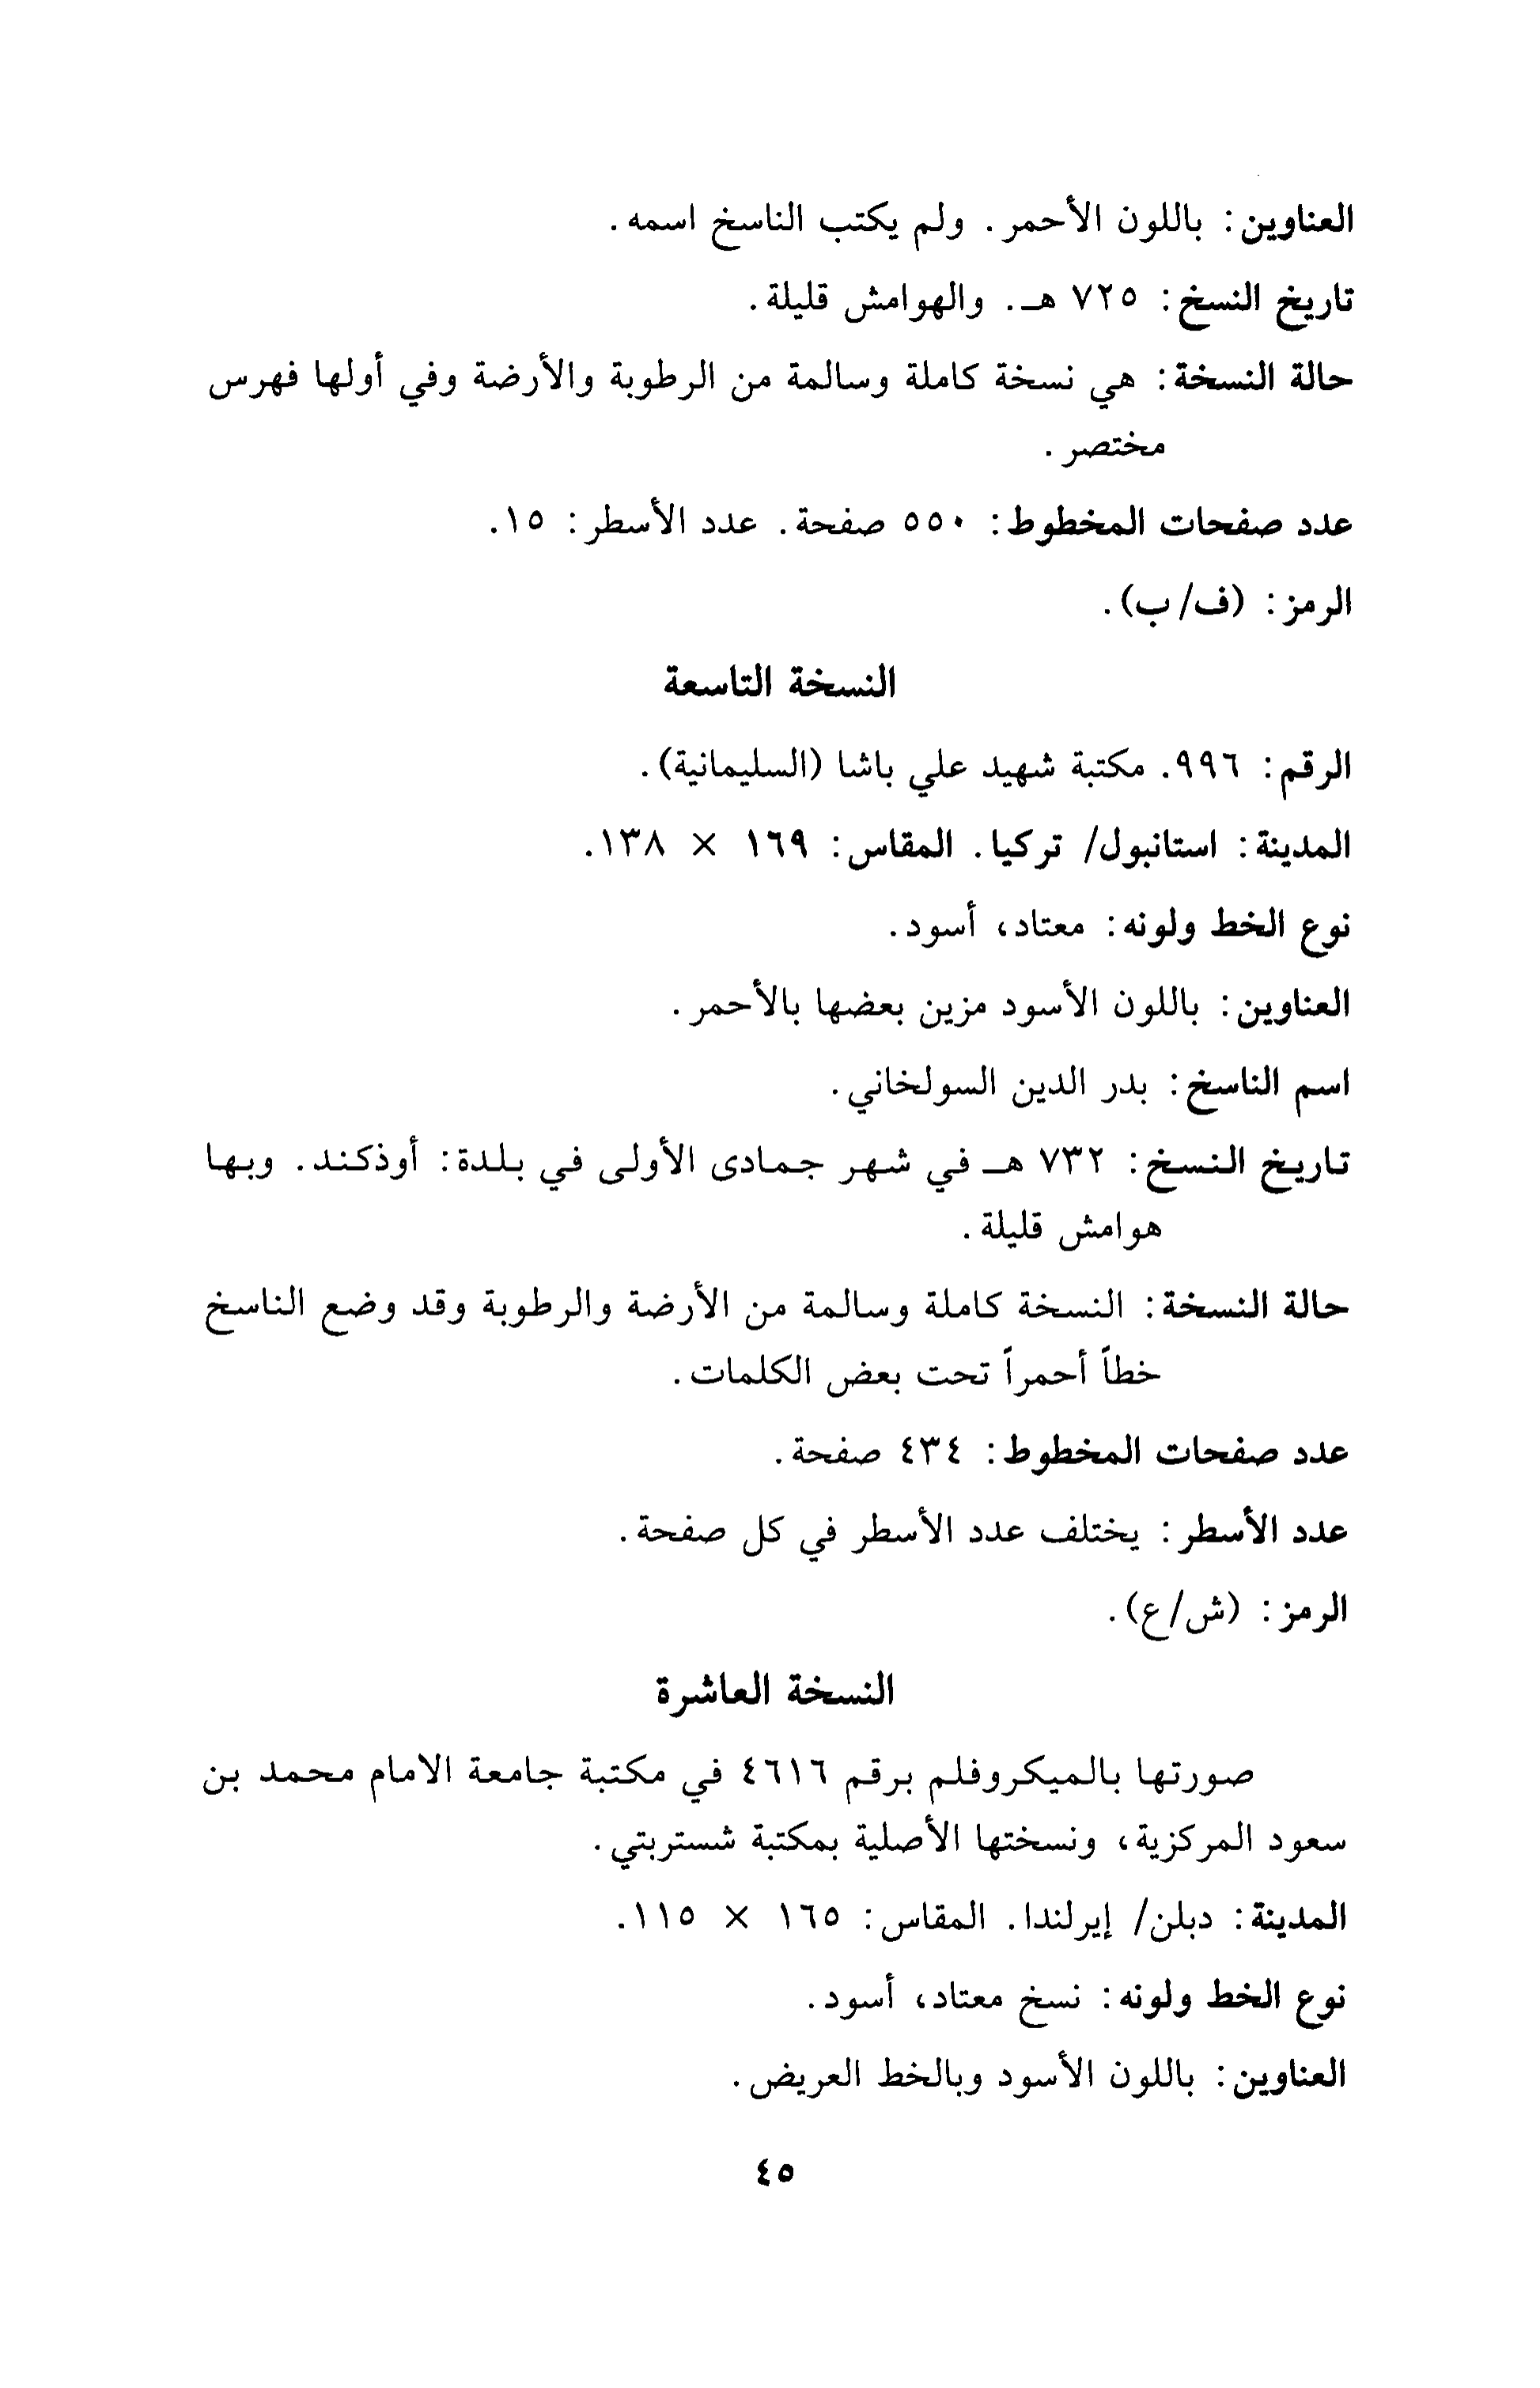 العناوين: باللون الأحمر. ولم يكتب الناسخ اسمه.
تاريخ النسخ: ٧٢٥ هـ. والهوامش قليلة.
حالة النسخة: هي نسخة كاملة وسالمة من الرطوبة والأرضة وفي أولها فهرس
مختصر.
عدد صفحات المخطوط: ٥٥٠ صفحة. عدد الأسطر: ١٥.
الرمز: (ف/ب).
النسخة التاسعة
الرقم: ٩٩٦. مكتبة شهيد علي باشا (السليمانية).
المدينة: استانبول/ تركيا. المقاس: ١٦٩ × ١٣٨.
نوع الخط ولونه: معتاد، أسود.
العناوين: باللون الأسود مزين بعضها بالأحمر.
اسم الناسخ: بدر الدين السولخاني.
تاريخ النسخ: ٧٣٢ هـ في شهر جمادى الأولى في بلدة: أوذكند. وبها
هوامش قليلة.
حالة النسخة: النسخة كاملة وسالمة من الأرضة والرطوبة وقد وضع الناسخ
خطاً أحمراً تحت بعض الكلمات.
عدد صفحات المخطوط: ٤٣٤ صفحة.
عدد الأسطر: يختلف عدد الأسطر في كل صفحة.
الرمز: (ش/ع).
النسخة العاشرة
صورتها بالميكروفلم برقم ٤٦١٦ في مكتبة جامعة الامام محمد بن
سعود المركزية، ونسختها الأصلية بمكتبة شستربتي.
المدينة: دبلن/ إيرلندا. المقاس: ١٦٥ × ١١٥.
نوع الخط ولونه: نسخ معتاد، أسود.
العناوين: باللون الأسود وبالخط العريض.
٤٥